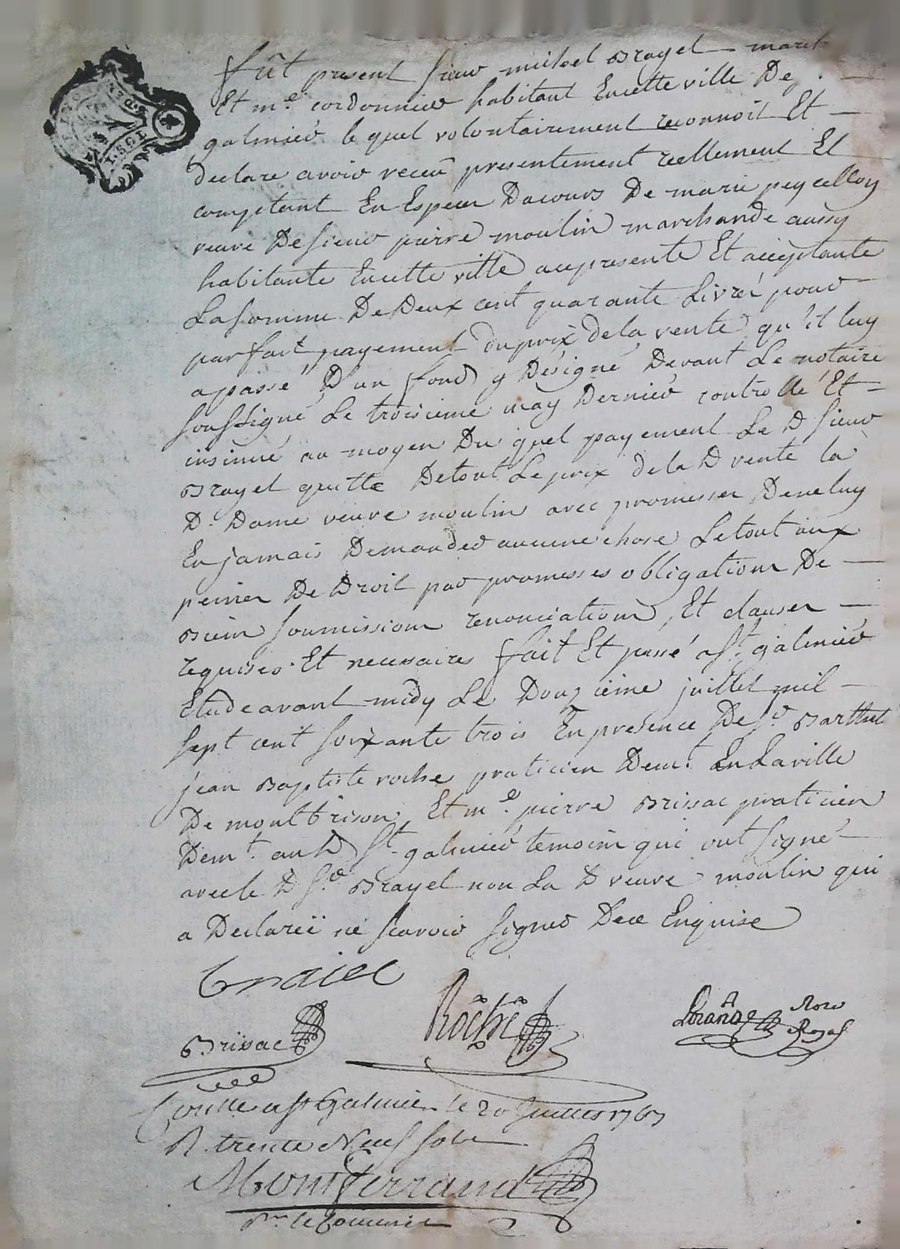 fût present sieur micheel Brayet march
Et me. cordonnier habitant En cette ville De
galmier le quel volontairement reconnoit Et
declare avoir receû presentement reellement Et
comptant En Especes Dacours De marie peycelloy
veuve De sieur pierre moulin marchande aussy
habitante En cette ville acepresente Et acceptante
La somme De Deux cent quarante Livres pour
parfait payement du prix de la vente qu'il luy
a passé D'un fond y Désigné Devant Le notaire
soussigné Le troisieme may Dernier controllé Et
insinué au moyen Du quel payement Le D sieur
Brayet quitte De tout Le prix de la D vente la
D. Dame veuve moulin avec promesses De ne luy
En jamais Demander aucune chose Le tout aux
peines De Droit par promesses obligations De
Biens soumissions renonciations Et clauses
requises Et necessaires fait Et passé a St. galmier
Etude avant midy Le Douzieme juillet mil
sept cent soixante trois En presence De Sr Barthel
jean Baptiste roche praticien Demt. En La ville
De montbrison Et me. pierre Brissac praticien
Demt. au D St. galmier temoins qui ont signé
avec le D Sr. Brayet non La D veuve moulin qui
a Declaréë ne scavoir signer De ce Enquise
Braiet
Brissac Roche Noro Royal
Conlle a St Galmier le 20 Juillet 1763
R trente Neuf sols
Montferrand